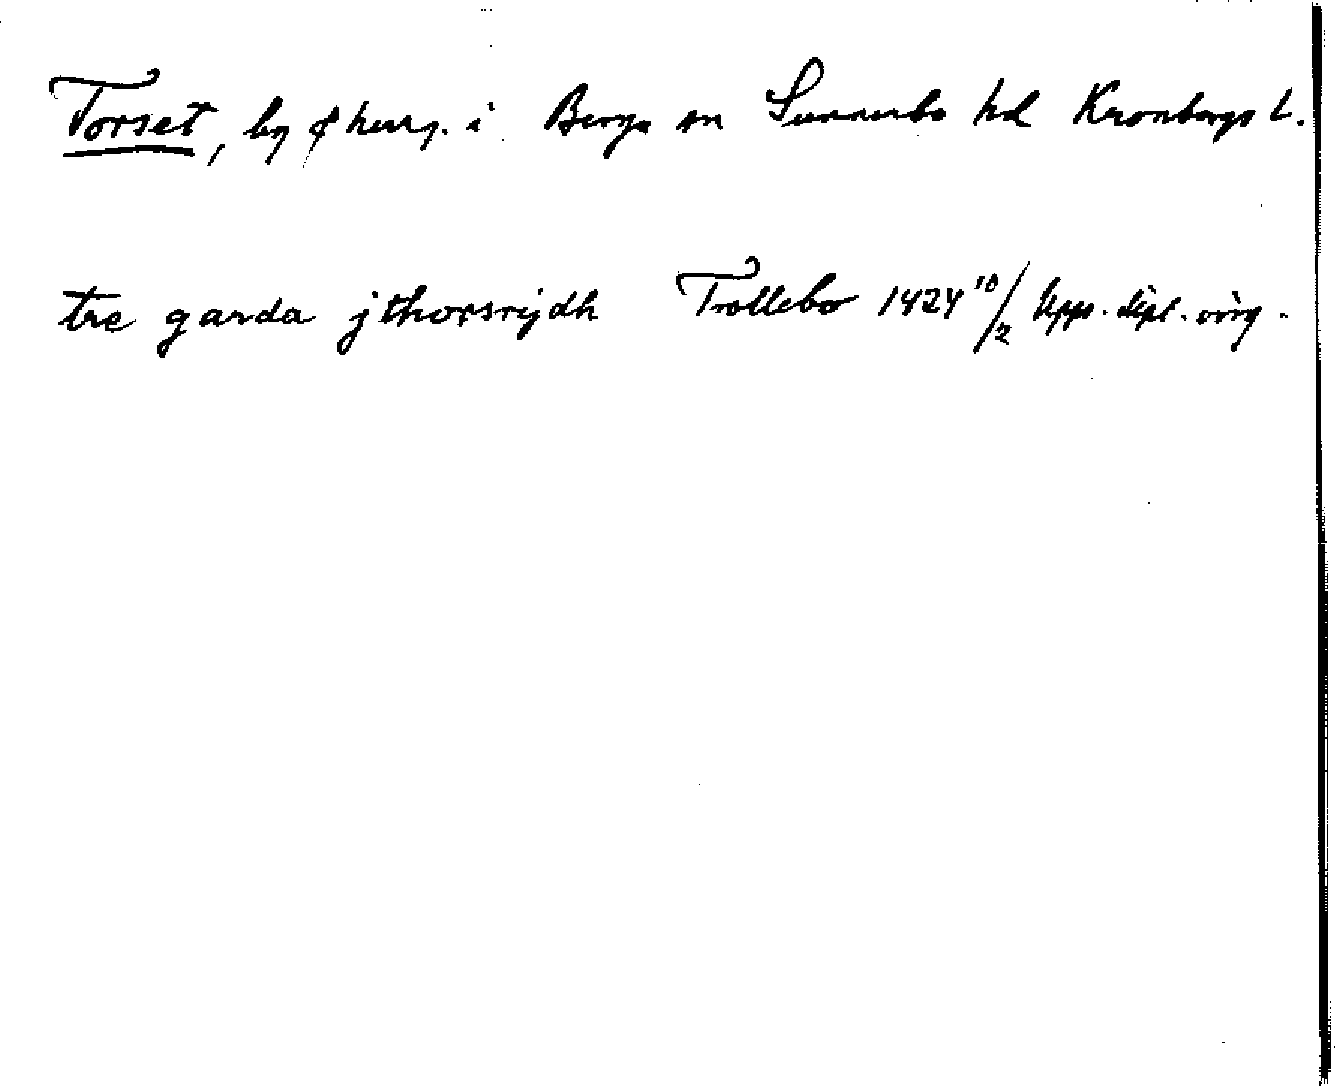 Torset, by & herrg. i Berga sn Sunnerbo hd Kronobergs l.
tre garda jthorsrydh Trottebo 1424 10/2 Upps. dipl. orig.